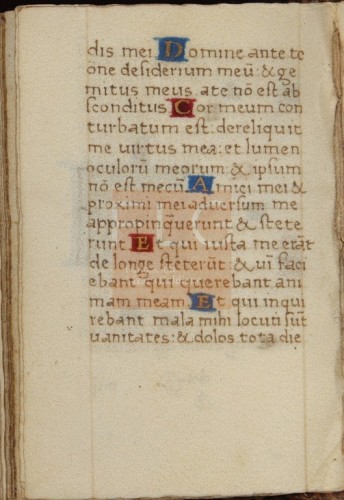 dis mei Domine ante te
õne desiderium meũ: & ge
mitus meus a te nõ est ab
sconditus Cor meum con
turbatum est: dereliquit
me uirtus mea: et lumen
oculorũ meorum: & ipsum
nõ est mecũ. Amici mei &
proximi mei aduersum me
appropinq̃uerunt & stete
runt Et qui iuxta me erãt
de longe steterũt: & uĩ faci
ebant qui querebant ani
mam meam. Et qui inqui
rebant mala mihi locuti sũt
uanitates: & dolos tota die